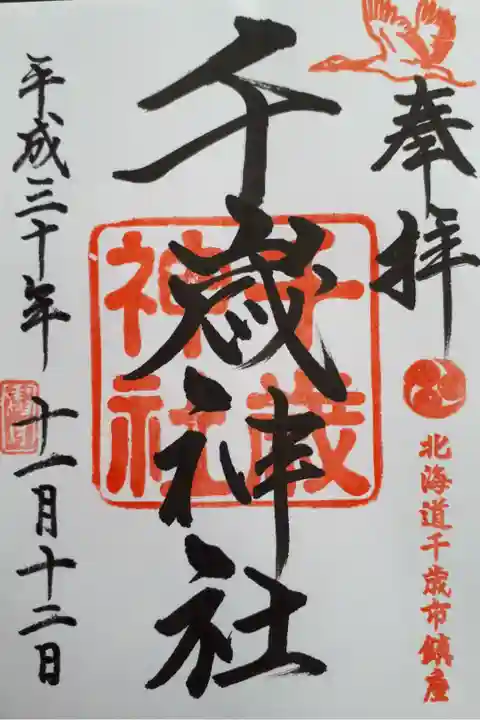 奉拝
北海道千歳市鎮座
千歳神社
千歳
神社
平成三十年 十一月十二日